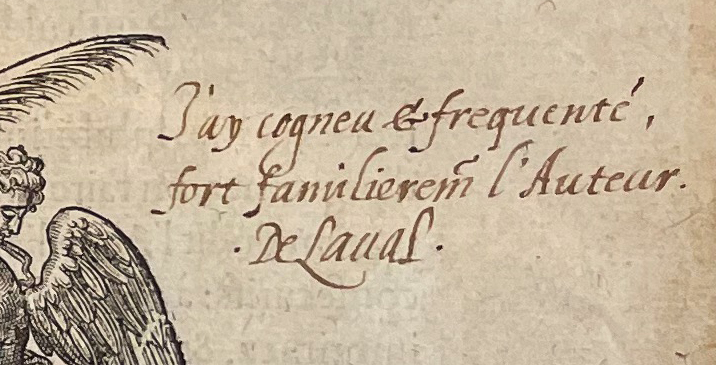 J'ay cogneu & frequenté,
fort familierem̃ l'Auteur.
·De Laual·